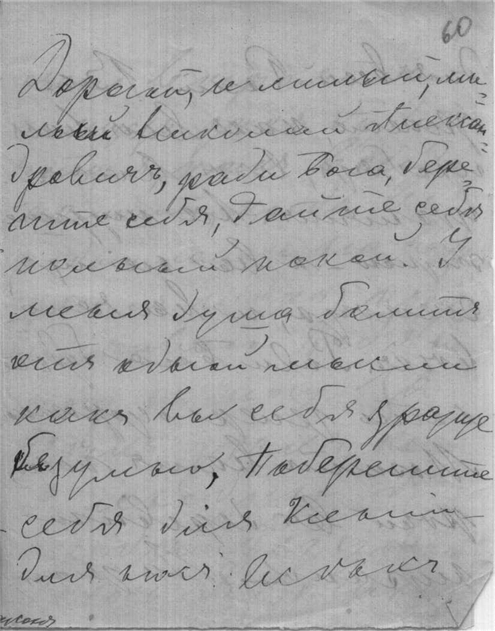 60
Дорогой, и милый, ми=
лый Николай Алексан=
дровичъ, ради Бога, бере=
гите себя, дайте себѣ
полный покой. У
меня душа болитъ
отъ одной мысли
какъ Вы себя
безумно, поберегите
себя для Ксени
для насъ